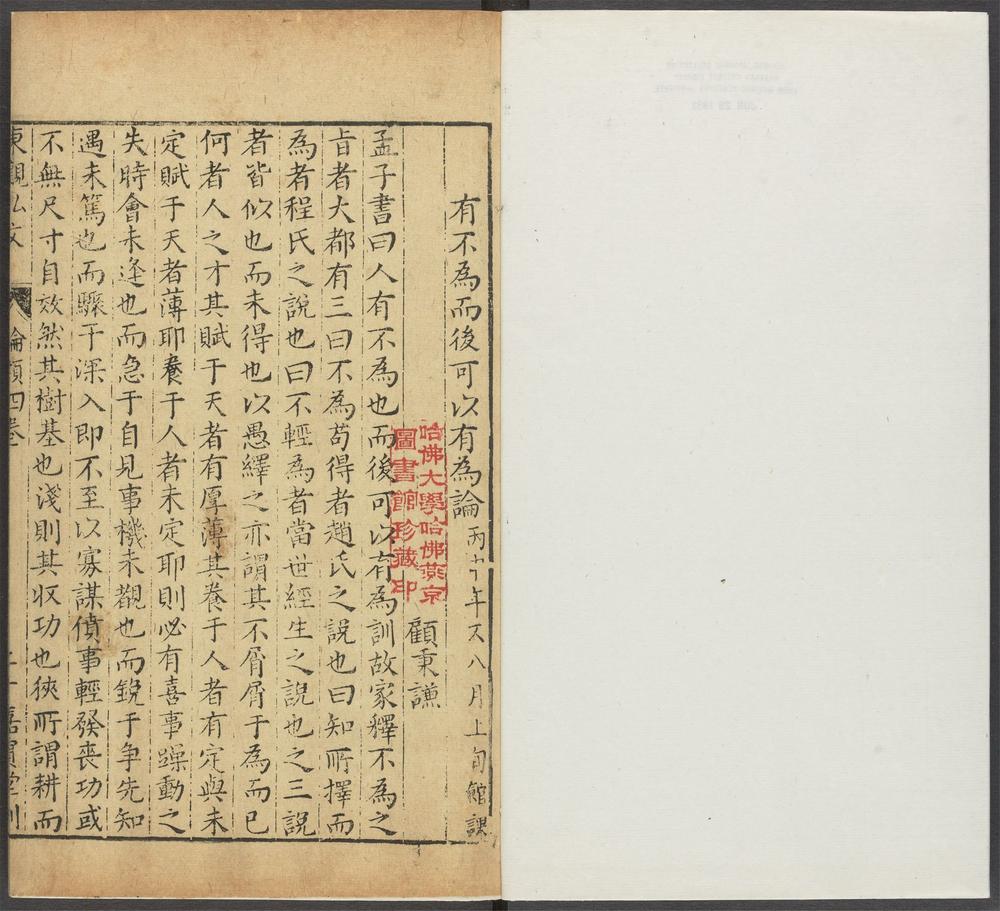 有不為而後可以有為論 丙午年又八月上旬館課
顧秉謙
孟子書曰人有不為也而後可以有為訓故家釋不為之
旨者大都有三曰不為苟得者趙氏之說也曰知所擇而
為者程氏之說也曰不輕為者當世經生之說也之三說
者皆似也而未得也以愚繹之亦謂其不屑屑于為而已
何者人之才其賦于天者有厚薄其養于人者有定與未
定賦于天者薄耶養于人者未定耶則必有喜事躁動之
失時會未逢也而急于自見事機未覩也而銳于争先知
遇未篤也而驟于深入即不至以寡謀僨事輕發喪功或
不無尺寸自效然其樹基也淺則其収功也狹所謂耕而
東觀弘文 論類四卷
哈佛大學哈佛燕京
圖書館珍藏印
JUN 29 1931